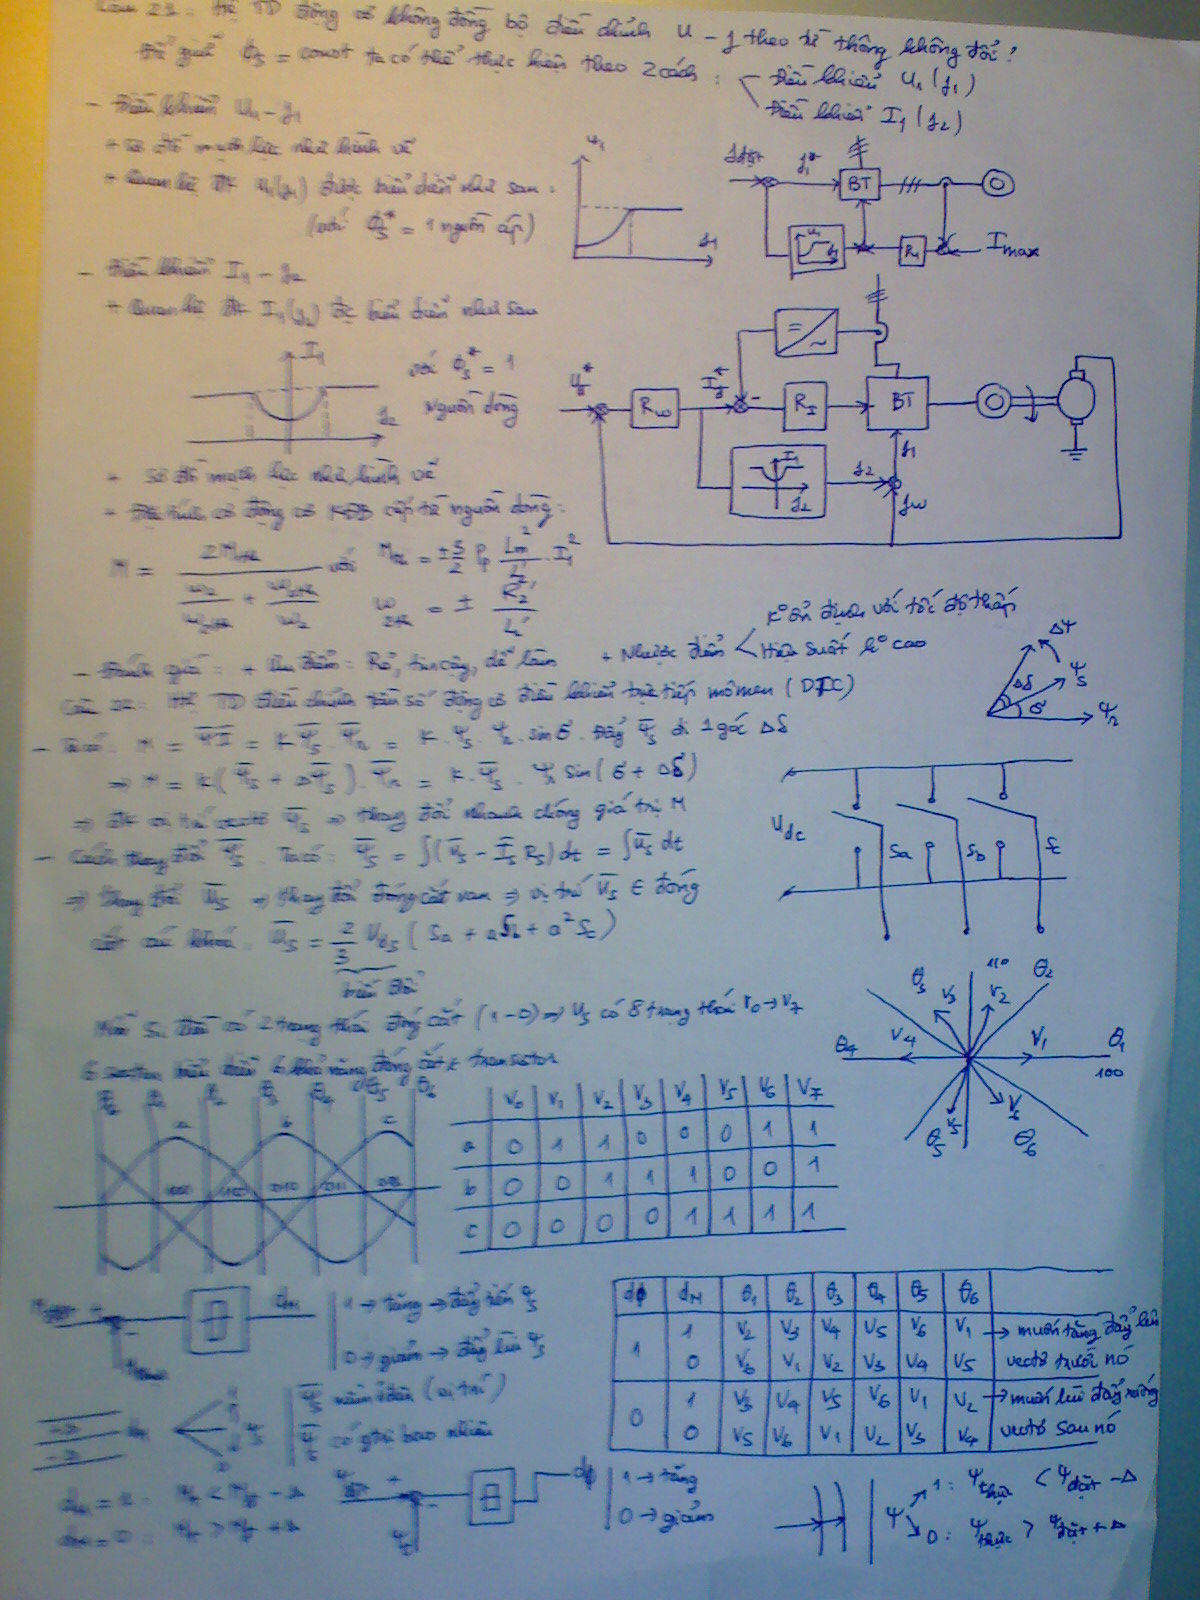 Câu 21: Hệ TĐ động cơ không đồng bộ điều chỉnh U - f theo từ thông không đổi?
Để giữ Φs = const ta có thể thực hiện theo 2 cách:
điều khiển U1 (f1)
điều khiển I1 (f2)
- Điều khiển U1 - f1
+ Sơ đồ mạch lực như hình vẽ
+ Quan hệ đk U1(f1) được biểu diễn như sau:
(với Φs* = 1 nguồn áp)
U1
f1
fđặt
f1*
BT
U1
f1
R1
Imax
- Điều khiển I1 - f2
+ Quan hệ đk I1(f2) đc biểu diễn như sau
I1
f2
với Φs* = 1
Nguồn dòng
=
~
Rω
-
RI
BT
I1
f2
f2
f1
fω
+ Sơ đồ mạch lực như hình vẽ
+ Đặc tính cơ động cơ KĐB cấp từ nguồn dòng:
M = 2Mth / (ω2/ω2th + ω2th/ω2) với Mth = ±3/2 Pp Lm²/L2' . I1²
ω2th = ± R2'/L2'
- Đánh giá: + Ưu điểm: Rẻ, tin cậy, dễ làm + Nhược điểm
K° ổn định với tốc độ thấp
Hiệu suất k° cao
Câu 22: Hệ TĐ điều chỉnh tần số động cơ điều khiển trực tiếp mômen (DTC)
ΔΨ
Ψs
Δδ
δ
Ψr
- Ta có: M = ΨI = K Ψs . Ψr = K . Ψs . Ψr . sin δ. Đẩy Ψs đi 1 góc Δδ
⇒ M = K(Ψs + ΔΨs) . Ψr = K . Ψs . Ψr sin(δ + Δδ)
⇒ đk vị trí vectơ Ψs ⇒ thay đổi nhanh chóng giá trị M
- Cách thay đổi Ψs. Ta có: Ψs = ∫(us - Is Rs) dt = ∫us dt
⇒ thay đổi us ⇒ thay đổi đóng cắt van ⇒ vị trí Vs ∈ đóng
cắt các khoá. us = 2/3 Udc (Sa + aSb + a²Sc)
biến đổi
Udc
Sa
Sb
Sc
Mỗi Si đều có 2 trạng thái đóng cắt (1-0) ⇒ Us có 8 trạng thái V0 → V7
6 sector biểu diễn 6 khả năng đóng cắt transistor
θ3
110
θ2
V3
V2
θ4
V4
V1
θ1
100
V5
V6
θ5
θ6
a
b
c
100
110
010
011
V0 V1 V2 V3 V4 V5 V6 V7
a 0 1 1 0 0 0 1 1
b 0 0 1 1 1 0 0 1
c 0 0 0 0 1 1 1 1
dM
1 → tăng → đẩy lên Ψs
0 → giảm → đẩy lùi Ψs
dΦ dM θ1 θ2 θ3 θ4 θ5 θ6
1 1 V2 V3 V4 V5 V6 V1 → muốn tăng đẩy lên
0 V6 V1 V2 V3 V4 V5 vectơ trước nó
0 1 V3 V4 V5 V6 V1 V2 → muốn lùi đẩy xuống
0 V5 V6 V1 V2 V3 V4 vectơ sau nó
Ψs nằm ở đâu (vị trí)
Ψs có gtrị bao nhiêu
dΦ
1 → tăng
0 → giảm
Ψ
1: Ψthực < Ψđặt - Δ
0: Ψthực > Ψđặt + Δ